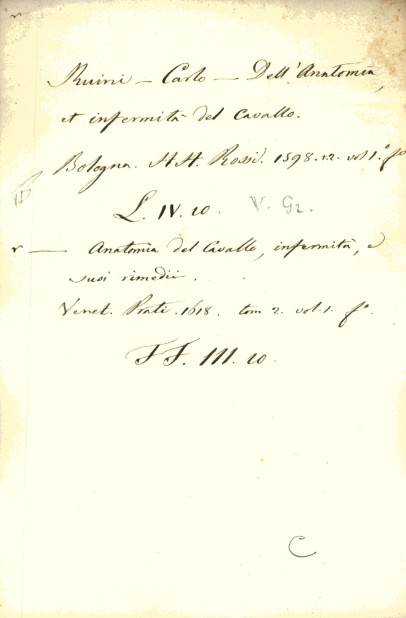 Ruini — Carlo — Dell'Anatomia,
et infermità del Cavallo.
Bologna. HH. Rossi. 1598. t.2. vol 1.° f.°
L. IV. 10. V. G2.
r — Anatomia del Cavallo, infermità, e
suoi rimedii.
Venet. Prati. 1618. tom 2. vol. 1. f.°
FF. III. 10.
C